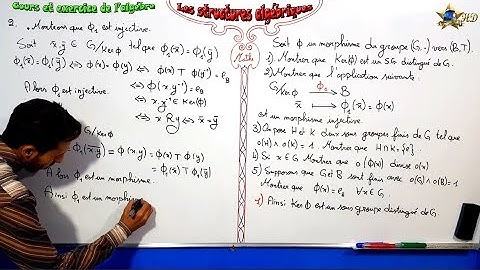 Cours et exercice de l'algèbre
Les structures algébriques
Math
2. Montrons que Φ₁ est injective.
Soit x̄, ȳ ∈ G/Ker Φ tel que Φ₁(x̄) = Φ₁(ȳ)
Φ₁(x̄) = Φ₁(ȳ) ⇔ Φ(x) = Φ(y) ⇔ Φ(x) T Φ(y)⁻¹ = e_B
⇔ Φ(x y⁻¹) = e_B
⇔ x y⁻¹ ∈ Ker(Φ)
⇔ x R y ⇔ x̄ = ȳ
Alors Φ₁ est injective.
G/Ker Φ
Φ₁(x̄ȳ) = Φ(x·y) = Φ(x) T Φ(y)
= Φ₁(x̄) T Φ₁(ȳ)
Alors Φ₁ est un morphisme.
Ainsi Φ₁ est un morphisme
Soit Φ un morphisme du groupe (G, ·) vers (B, T).
1). Montrer que Ker(Φ) est un S.G distingué de G.
2) Montrer que l'application suivante:
Φ₁: G/Ker Φ → B
x̄ ↦ Φ₁(x̄) = Φ(x)
est un morphisme injective.
3) On pose H et K deux sous groupes finis de G tel que
o(H) ∧ o(K) = 1. Montrer que H ∩ K = {e}.
4) Si x ∈ G Montrer que o(Φ(x)) divise o(x)
5) Supposons que G et B sont finis avec o(G) ∧ o(B) = 1
Montrer que Φ(x) = e_B ∀x ∈ G.
1) Ainsi Ker Φ est un sous groupe distingué de G.